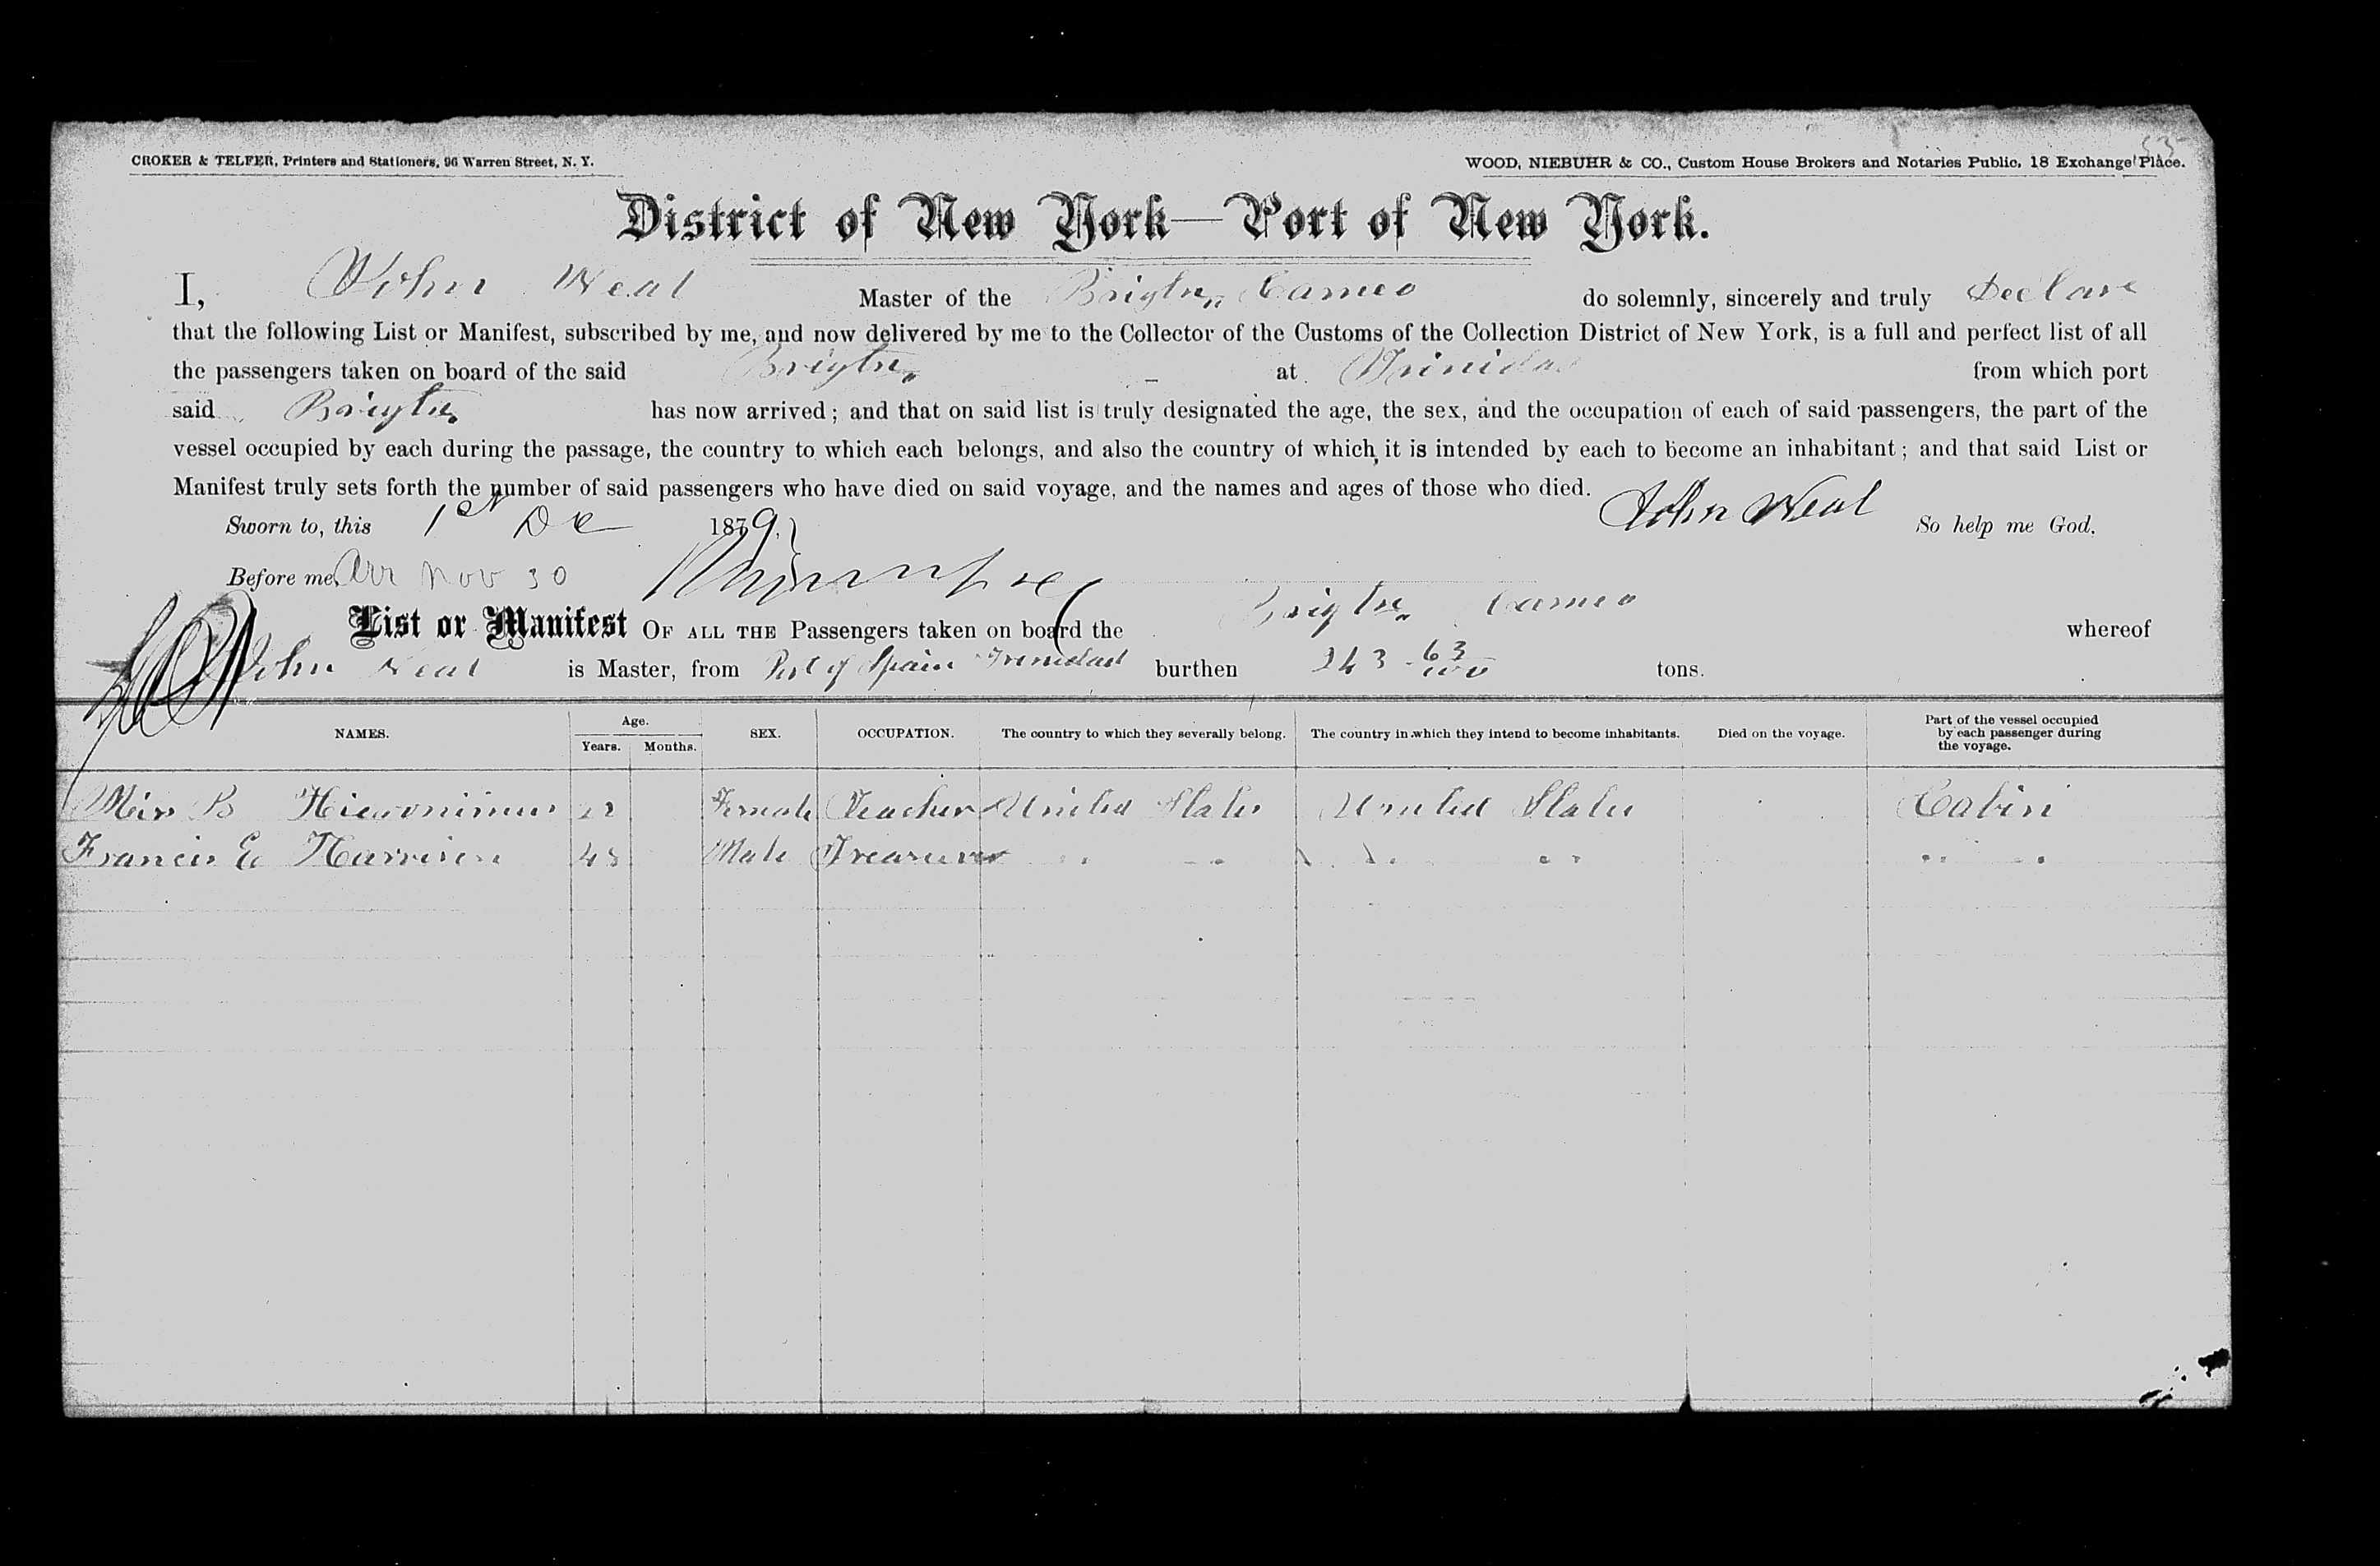 CROKER & TELFER, Printers and Stationers, 96 Warren Street, N. Y. WOOD, NIEBUHR & CO., Custom House Brokers and Notaries Public, 18 Exchange Place.
District of New York—Port of New York.
I, John Neal Master of the Brigtn Cameo do solemnly, sincerely and truly Declare
that the following List or Manifest, subscribed by me, and now delivered by me to the Collector of the Customs of the Collection District of New York, is a full and perfect list of all
the passengers taken on board of the said Brigtn at Trinidad from which port
said Brigtn has now arrived; and that on said list is truly designated the age, the sex, and the occupation of each of said passengers, the part of the
vessel occupied by each during the passage, the country to which each belongs, and also the country of which it is intended by each to become an inhabitant; and that said List or
Manifest truly sets forth the number of said passengers who have died on said voyage, and the names and ages of those who died.
Sworn to, this 1st De 1879. John Neal So help me God.
Before me, Arr Nov 30
List or Manifest OF ALL THE Passengers taken on board the Brigtn Cameo whereof
John Neal is Master, from Port of Spain Trinidad burthen 243 63/100 tons.
NAMES. Age. Years. Months. SEX. OCCUPATION. The country to which they severally belong. The country in which they intend to become inhabitants. Died on the voyage. Part of the vessel occupied by each passenger during the voyage.
Miss B Hieronimus 22 Female Teacher United States United States Cabin
Francis E Harrison Male Treasurer " " " " " "